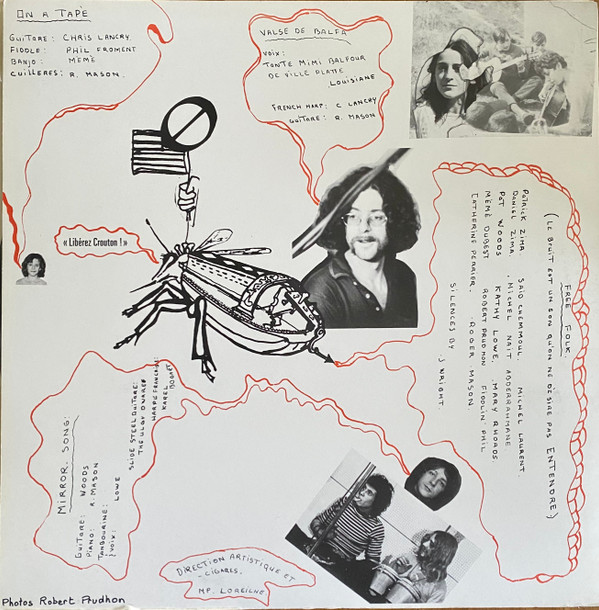 ON A TAPÉ
GUITARE: CHRIS LANCRY
FIDDLE: PHIL FROMENT
BANJO: MÉMÉ
CUILLERES: R. MASON.
VALSE DE BALFA
VOIX:
TONTE MIMI BALFOUR
DE VILLE PLATTE
LOUISIANE
FRENCH HARP: C LANCRY
GUITARE: R. MASON
« Libérez Crouton ! »
FREE FOLK.
(LE BRUIT EST UN SON QU'ON NE DÉSIRE PAS ENTENDRE)
PATRICK ZIMA SAÏD CHEMMOUL. MICHEL LAURENT.
DANIEL ZIMA, MICHEL NAIT ABDERRAHMANE
PAT WOODS KATHY LOWE, MARY RHOADS
MÉMÉ DUBEST ROBERT PRUDHON FIDDLIN' PHIL
CATHERINE PERRIER. ROGER MASON
SILENCES BY J WRIGHT
MIRROR. SONG:
GUITARE: WOODS
PIANO: R. MASON
TAMBOURINE:
VOIX: LOWE
SLIDE STEEL GUITARE:
THE UGLY DWARF
HARPE FRANÇAISE:
KAREL BOGART
DIRECTION ARTISTIQUE ET
-CIGARES.
MP. LOREILHE
Photos Robert Prudhon